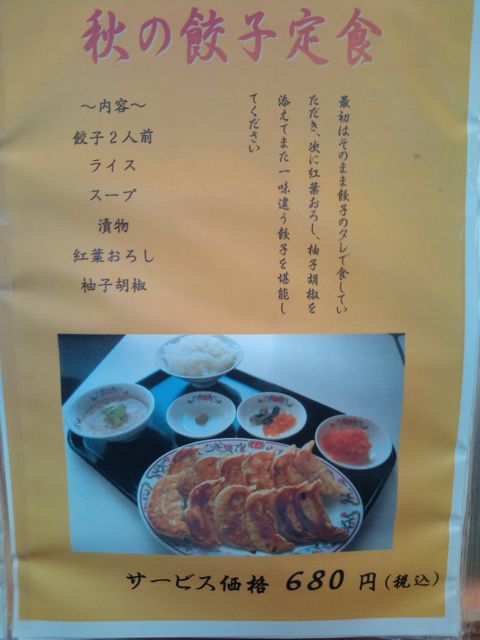 秋の餃子定食
～内容～
餃子２人前
ライス
スープ
漬物
紅葉おろし
柚子胡椒
最初はそのまま餃子のタレで食してい
ただき、次に紅葉おろし、柚子胡椒を
添えてまた一味違う餃子を堪能し
てください
サービス価格 680 円(税込)